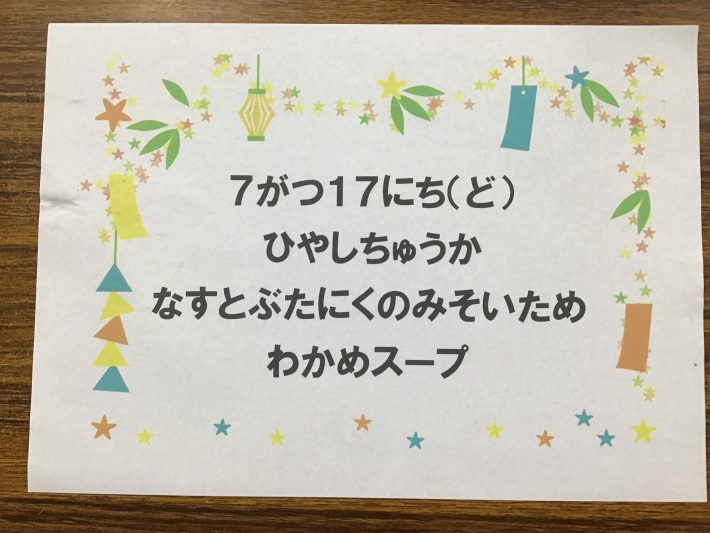 7がつ17にち(ど)
ひやしちゅうか
なすとぶたにくのみそいため
わかめスープ